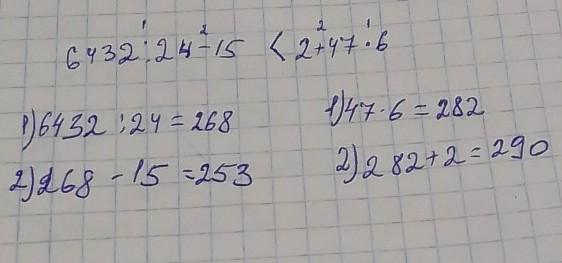 1 2 2 1
6432 : 24 - 15 < 2 + 47 · 6
1) 6432 : 24 = 268 1) 47 · 6 = 282
2) 268 - 15 = 253 2) 282 + 2 = 290